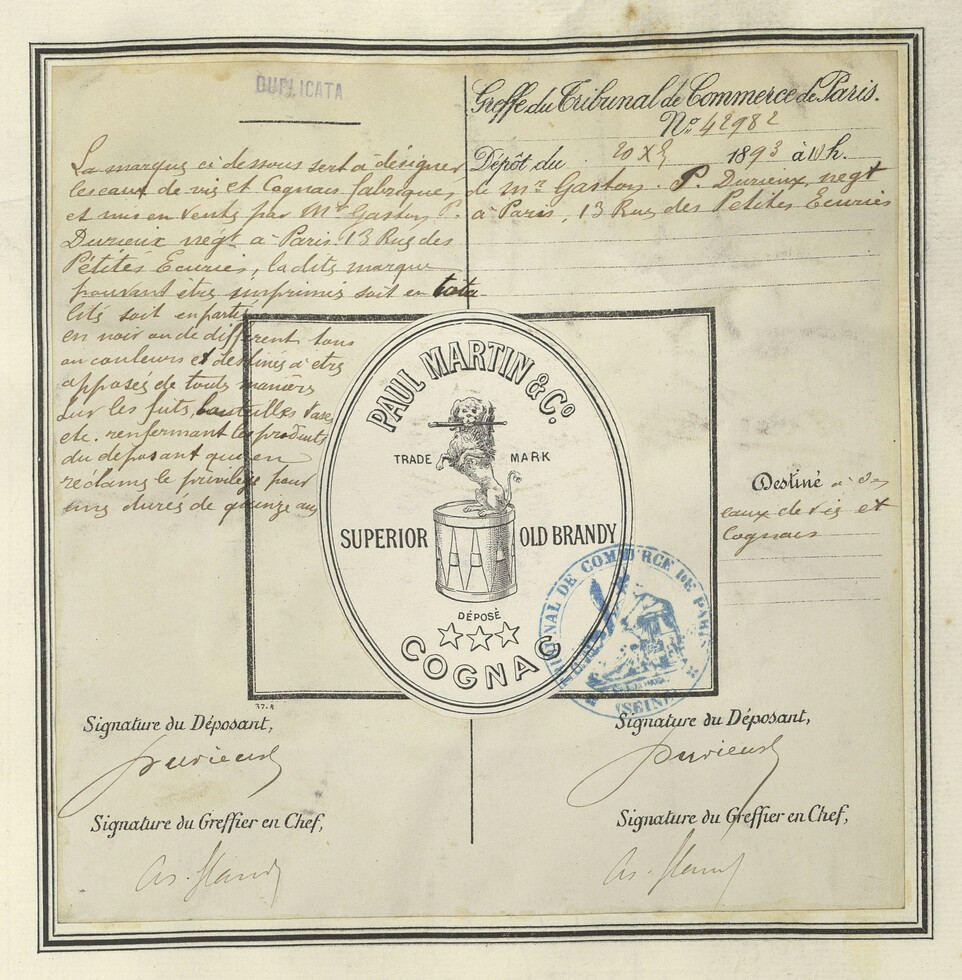 DUPLICATA
La marque ci dessous sert à désigner
les eaux de vie et Cognacs fabriqués
et mis en vente par Mr Gaston P.
Durieux négt à Paris 13 Rue des
Petites Ecuries, la dite marque
pouvant etre imprimée soit en tota
lité soit en partie
en noir ou de différent tons
ou couleurs et destinés à etre
apposée de toute manière
sur les futs, bouteilles vases
etc. renfermant les produits
du déposant qui en
réclame le privilège pour
une durée de quinze ans
Greffe du Tribunal de Commerce de Paris.
No. 42982
Dépôt du 20 Xe 1893 à 10 h.
de Mr Gaston. P. Durieux, négt
à Paris, 13 Rue des Petites Ecuries
PAUL MARTIN & Co.
TRADE MARK
SUPERIOR OLD BRANDY
DÉPOSÉ
COGNAC
Destiné à des
eaux de vie et
Cognacs
TRIBUNAL DE COMMERCE DE PARIS
(SEINE)
Signature du Déposant,
Durieux
Signature du Greffier en Chef,
Signature du Déposant,
Durieux
Signature du Greffier en Chef,